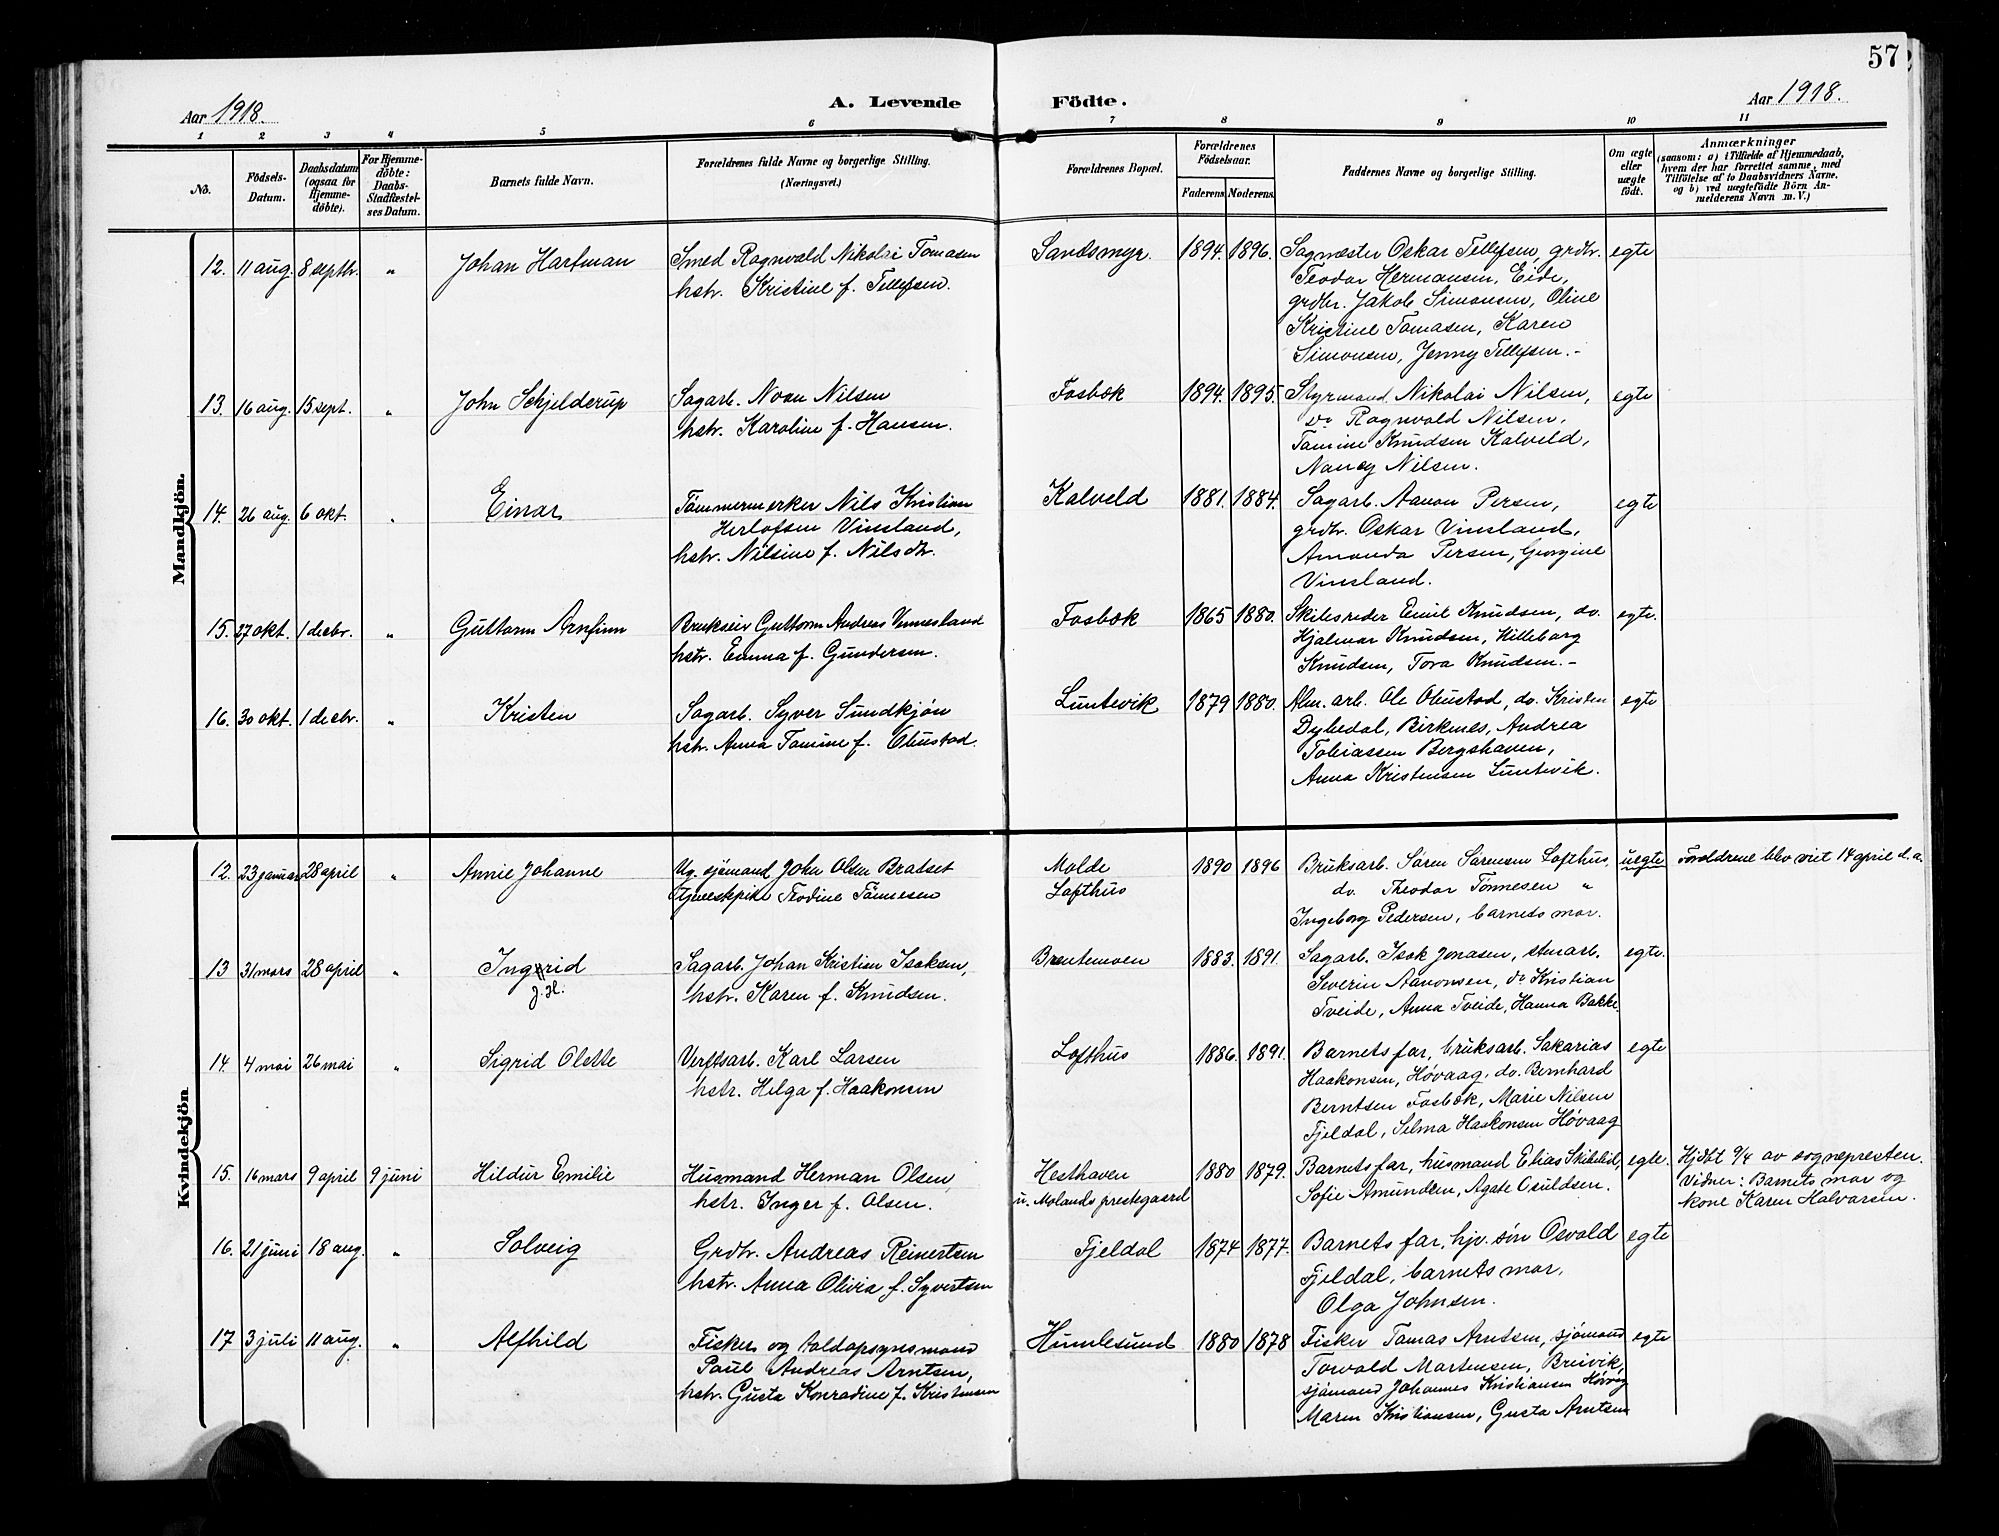 57
Aar 1918.
A. Levende Födte.
Aar 1918.
1 2 3 4 5 6 7 8 9 10 11
No.
Födsels-Datum.
Daabsdatum (ogsaa for Hjemme-döbte).
For Hjemme-döbte: Daabs-Stadfæstel-ses Datum.
Barnets fulde Navn.
Forældrenes fulde Navne og borgerlige Stilling.
(Næringsvei.)
Forældrenes Bopæl.
Forældrenes Födselsaar.
Faderens. Moderens.
Faddernes Navne og borgerlige Stilling.
Om ægte eller uægte födt.
Anmærkninger
(saasom: a) i Tilfælde af Hjemmedaab,
hvem der har forrettet samme, med
Tilföielse af to Daabsvidners Navne,
og b) ved uægtefödte Börn An-
melderens Navn m. V.)
Mandkjön.
12. 11 aug. 8 septbr. " Johan Hartman Smed Ragnvald Nikolai Tomasen Sandsmyr. 1894. 1896. Sagmester Oskar Tellefsen, grdbr. egte
hstr. Kristine f. Tellefsen. Teodor Hermansen, Eide,
grdbr. Jakob Simonsen, Oline
Kristine Tomasen, Karen
Simonsen, Jenny Tellefsen.-
13. 16 aug. 15 sept. " John Schjelderup Sagarb. Noan Nilsen Fosbæk 1894. 1895. Styrmand Nikolai Nilsen, egte
hstr. Karoline f. Hansen. do Ragnvald Nilsen,
Tomine Knudsen Kalveld,
Nancy Nilsen.
14. 26 aug. 6 okt. " Einar Tömmermerker Nils Kristian Kalveld 1881. 1884. Sagarb. Aanon Persen, egte
Herlofsen Vinsland, grdbr. Oskar Vinsland,
hstr. Nilsine f. Nilsdtr. Amanda Persen, Georgine
Vinsland.
15. 27 okt. 1 decbr. " Guttorm Arnfinn Brukseier Guttorm Andreas Vennesland Fosbæk 1865 1880. Skibsreder Emil Knudsen, do. egte.
hstr. Emma f. Gundersen. Hjalmar Knudsen, Killeborg
Knudsen, Tora Knudsen.-
16. 30 okt. 1 decbr. " Kristen Sagarb. Syver Sundkjön Luntevik 1879 1880. Alm. arb. Ole Olustad, do. Kristen egte
hstr. Anna Tomine f. Olustad. Dybedal, Birknes, Andrea
Tobiassen Bergshaven,
Anna Kristensen Luntevik.
Kvindekjön
12. 23 januar 28 april " Annie Johanne Ug. sjömand John Olsen Bratset Molde 1890 1896 Bruksarb. Sören Sörensen Lofthus, uegte Foreldrene blev viet 14 april d.a.
tjenestepike Teodine Tönnesen Lofthus do. Theodor Tönnesen "
Ingeborg Pedersen, barnets mor.
13 31 mars 28 april " Ingrid Sagarb. Johan Kristian Isaksen, Brentemoen 1883. 1891. Sagarb. Isak Jonasen, stenarb. egte.
J. H. hstr. Karen f. Knudsen. Severin Aanonsen, do Kristian
Tveide, Anna Tveide, Hanna Bakke.
14. 4 mai 26 mai " Sigrid Olette Verftsarb. Karl Larsen Lofthus 1886. 1891. Barnets far, bruksarb. Sakarias egte
hstr. Helga f. Haakonsen Haakonsen, Høvaag, do. Bernhard
Berntsen Fosbæk, Marie Nilsen
Fjeldal, Selma Haakonsen Høvaag
15. 16 mars 9 april 9 juni Hildur Emilie Husmand Herman Olsen, Hesthaven 1880 1879. Barnets far, husmand Elias Skibeli, egte. Hjdbt 9/4 av sognepresten.
hstr. Inger f. Olsen. u. Molands prestegaard Sofie Amundsen, Agate Osuldsen. Vidner: Barnets mor og
kone Karen Halvorsen.
16. 21 juni 18 aug. " Solveig Grdbr. Andreas Reinertsen Fjeldal 1874 1877. Barnets far, hjv. sön Osvald egte
hstr. Anna Olivia f. Syvertsen Fjeldal, barnets mor,
Olga Johnsen.
17 3 juli 11 aug. " Alfhild Fisker og toldopsynsmand Humlesund 1880 1878 Fisker Tomas Arntsen, sjömand egte
Paul Andreas Arntsen, Torvald Mortensen, Breivik,
hstr. Gusta Konradine f. Kristensen sjömand Johannes Kristiansen Høvåg
Maren Kristiansen, Gusta Arntsen